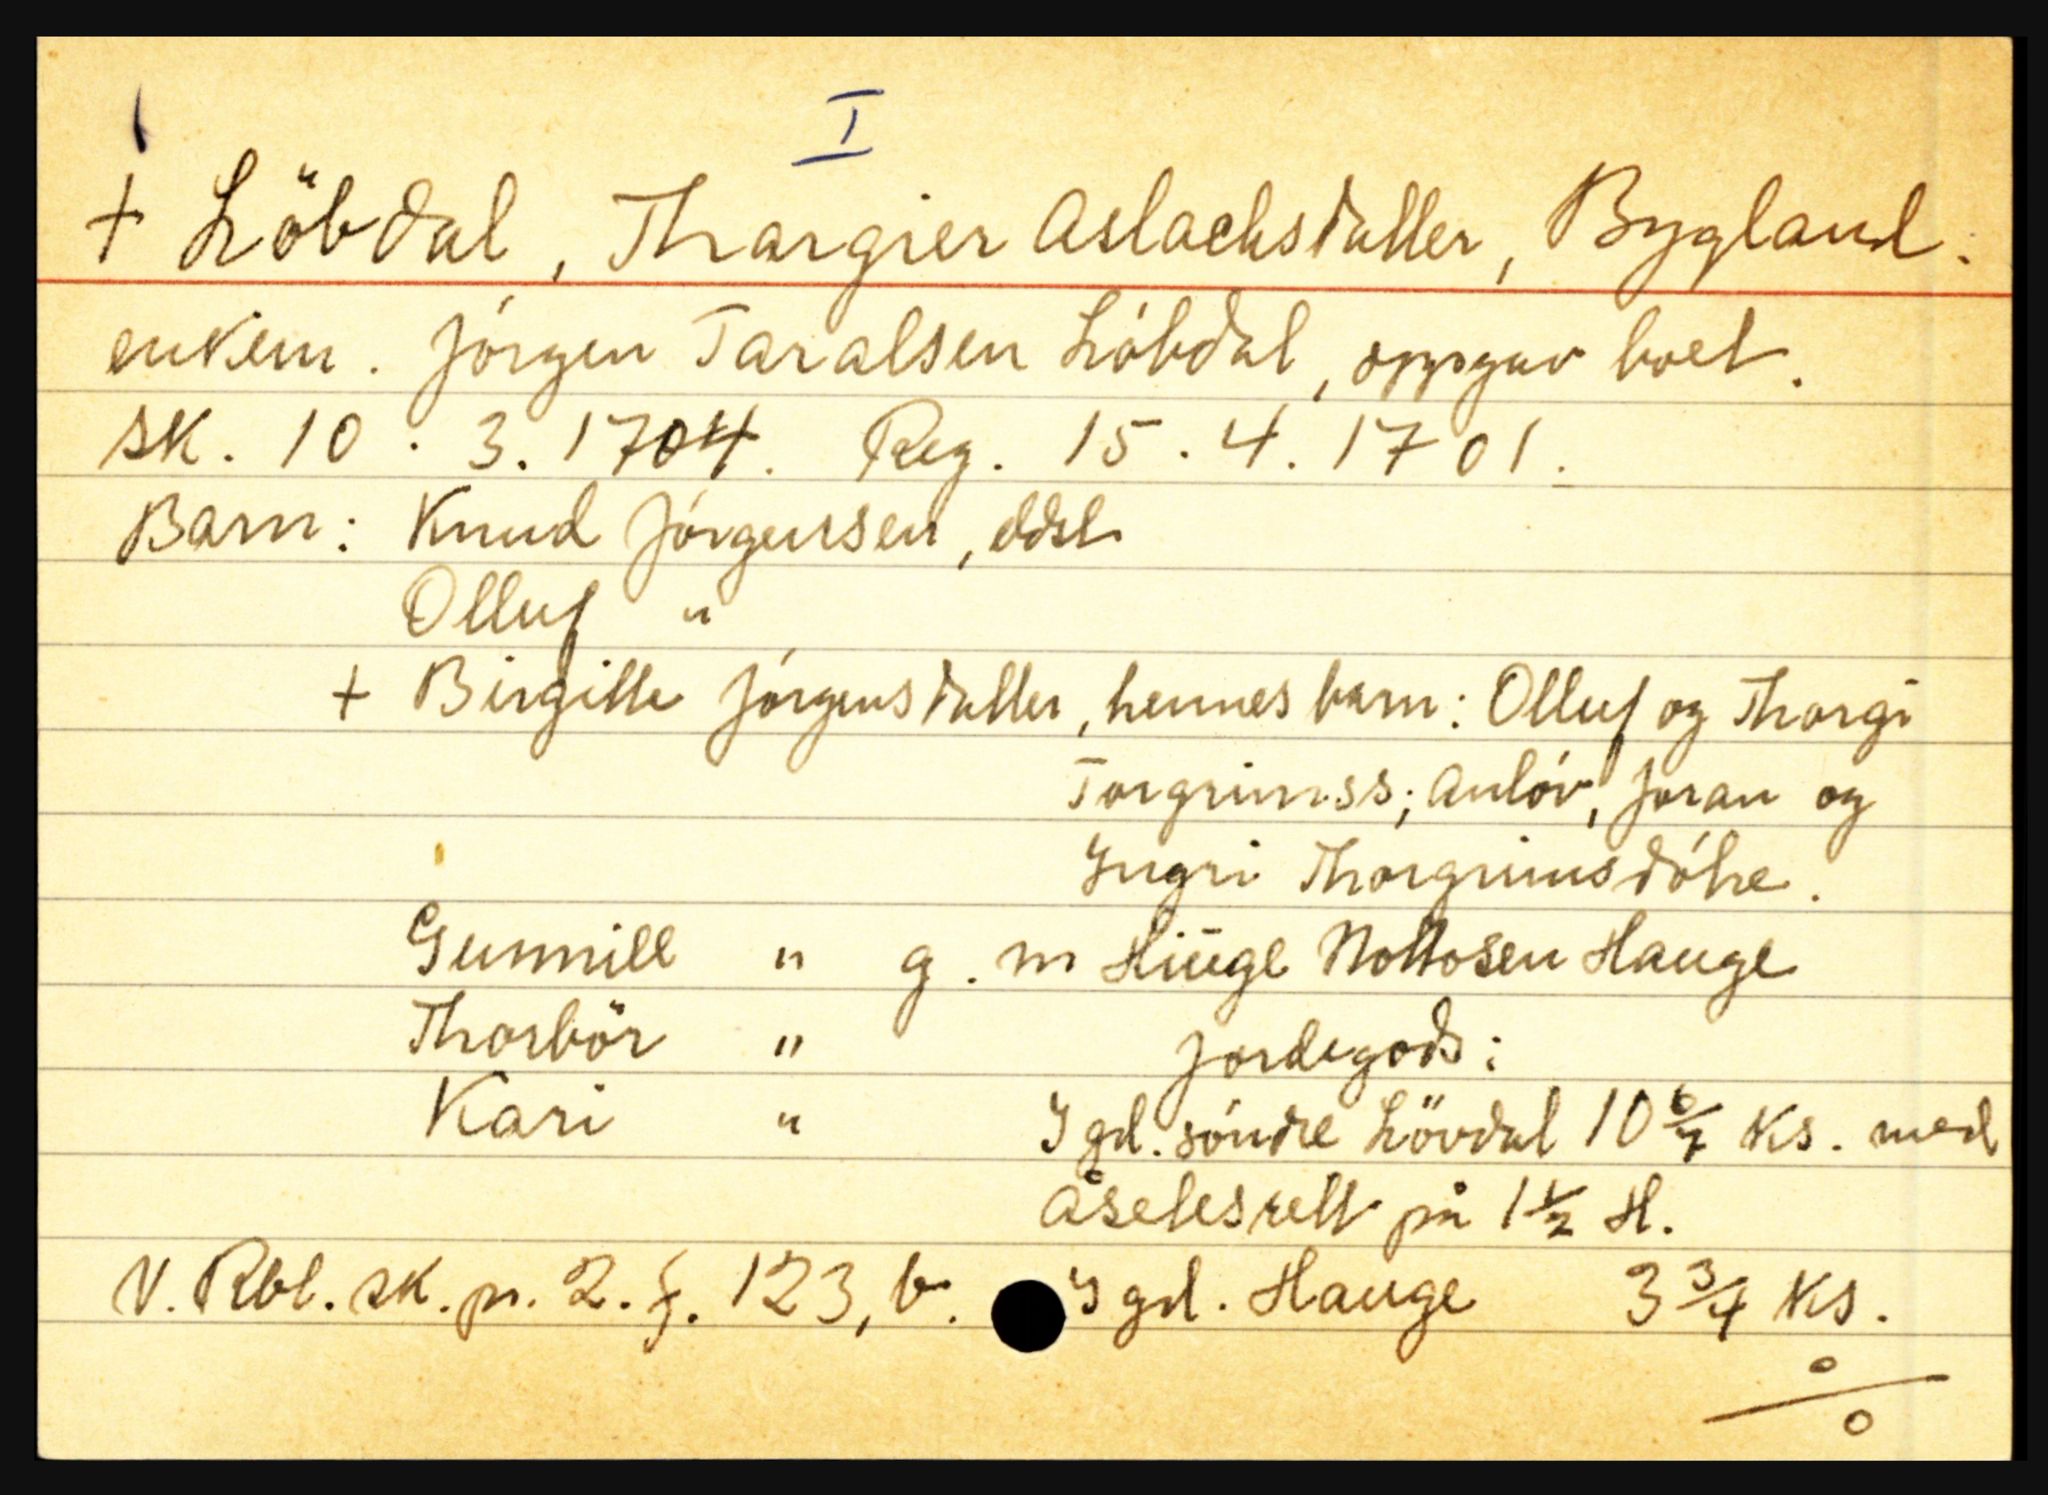 I
+ Löbdal, Thargier Aslachsdatter, Bygland.
enkem. Jörgen Taralsen Löbdal, oppgav boet.
sk. 10. 3. 1704. Reg. 15. 4. 1701.
Barn: Knud Jörgensen, eldst
Olluf "
+ Birgitte Jörgensdatter, hennes barn: Olluf og Thorgi
Torgrimss; Anlöv, Joran og
Yngri Thorgrimsdötre.
Gunnill " g. m Hüge Nottosen Hauge
Thorbör " Jordegods:
Kari " I gd. söndre Lövdal 10 6/7 Ks. med
Åsetesrett på 1 1/2 H.
N. Rbl. sk. pr. 2. f. 123, b. I gd. Hauge 3 3/4 Ks.
o/o